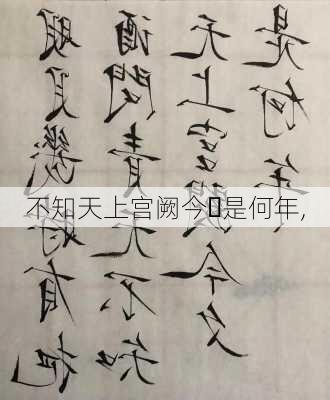 明月幾时有把
酒問青天不知
天上宫闕今夕
是何年
不知天上宫阙今▯是何年,